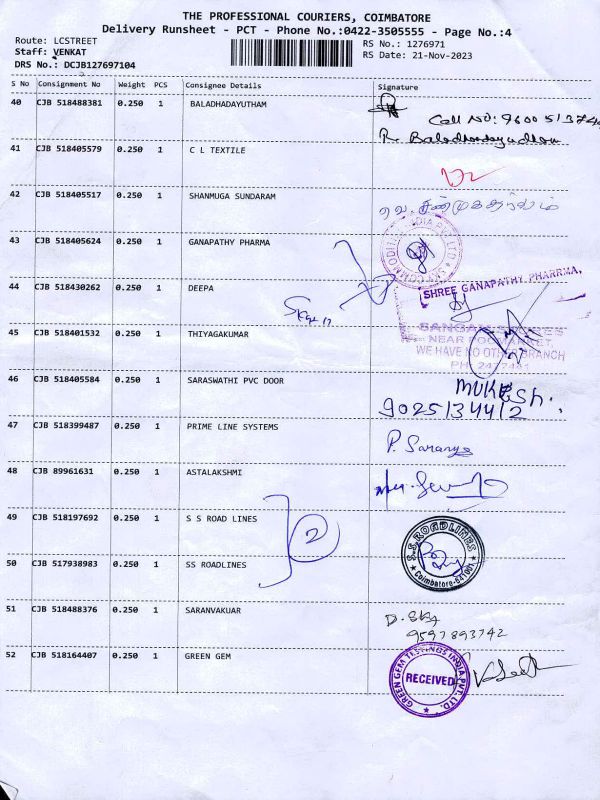 THE PROFESSIONAL COURIERS, COIMBATORE
Delivery Runsheet - PCT - Phone No.:0422-3505555 - Page No.:4
Route: LCSTREET
Staff: VENKAT
DRS No.: DCJB127697104
RS No.: 1276971
RS Date: 21-Nov-2023
S No Consignment No Weight PCS Consignee Details Signature
40 CJB 518488381 0.250 1 BALADHADAYUTHAM
Call NO:
41 CJB 518405579 0.250 1 C L TEXTILE
42 CJB 518405517 0.250 1 SHANMUGA SUNDARAM
43 CJB 518405624 0.250 1 GANAPATHY PHARMA
SHREE GANAPATHY PHARRMA,
44 CJB 518430262 0.250 1 DEEPA
45 CJB 518401532 0.250 1 THIYAGAKUMAR
WE HAVE NO OTHER BRANCH
46 CJB 518405584 0.250 1 SARASWATHI PVC DOOR
MUKESH.
9025134412
47 CJB 518399487 0.250 1 PRIME LINE SYSTEMS
P. Saranya
48 CJB 89961631 0.250 1 ASTALAKSHMI
49 CJB 518197692 0.250 1 S S ROAD LINES
2
S.S. ROADLINES
Coimbatore-641001
50 CJB 517938983 0.250 1 SS ROADLINES
51 CJB 518488376 0.250 1 SARANVAKUAR
9597893742
52 CJB 518164407 0.250 1 GREEN GEM
GREEN GEM TESTINGS INDIA PVT. LTD.
RECEIVED